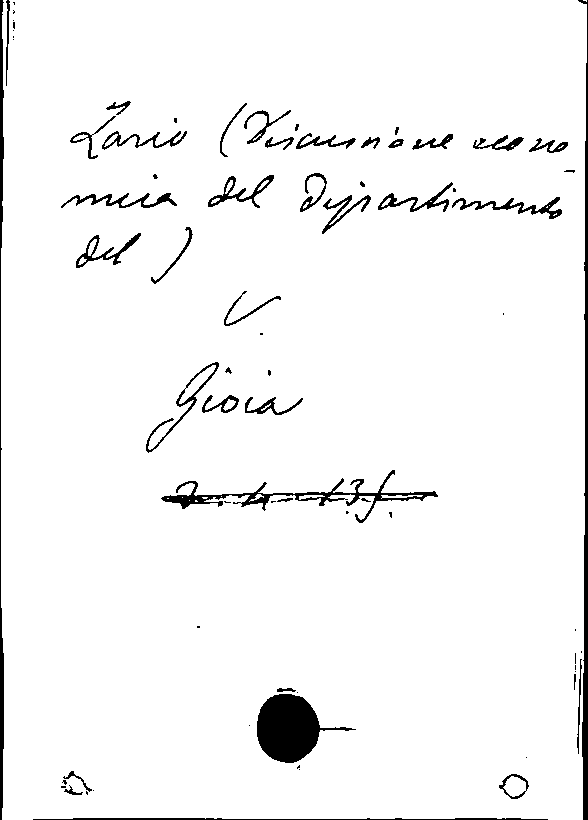 Lario (Discussione econo-
mica del Dipartimento
del)
V.
Gioia
2. 4. 13 f.